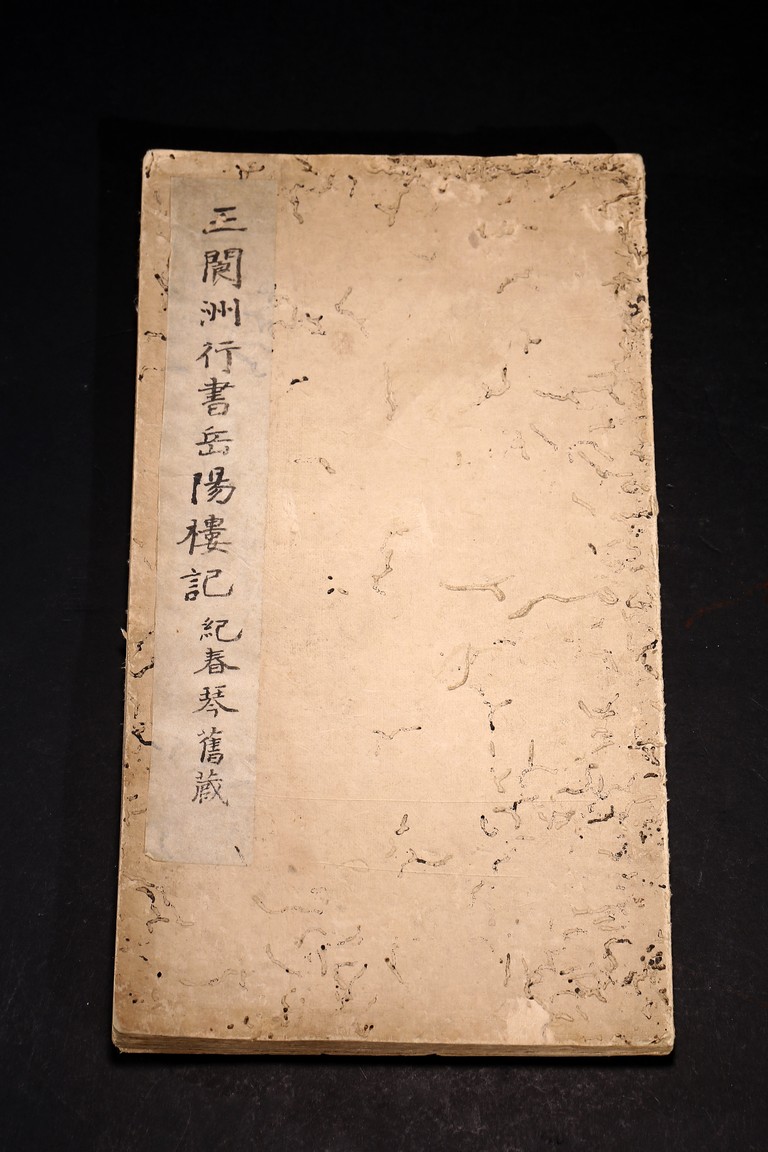 王閬洲行書岳陽樓記紀春琴舊藏